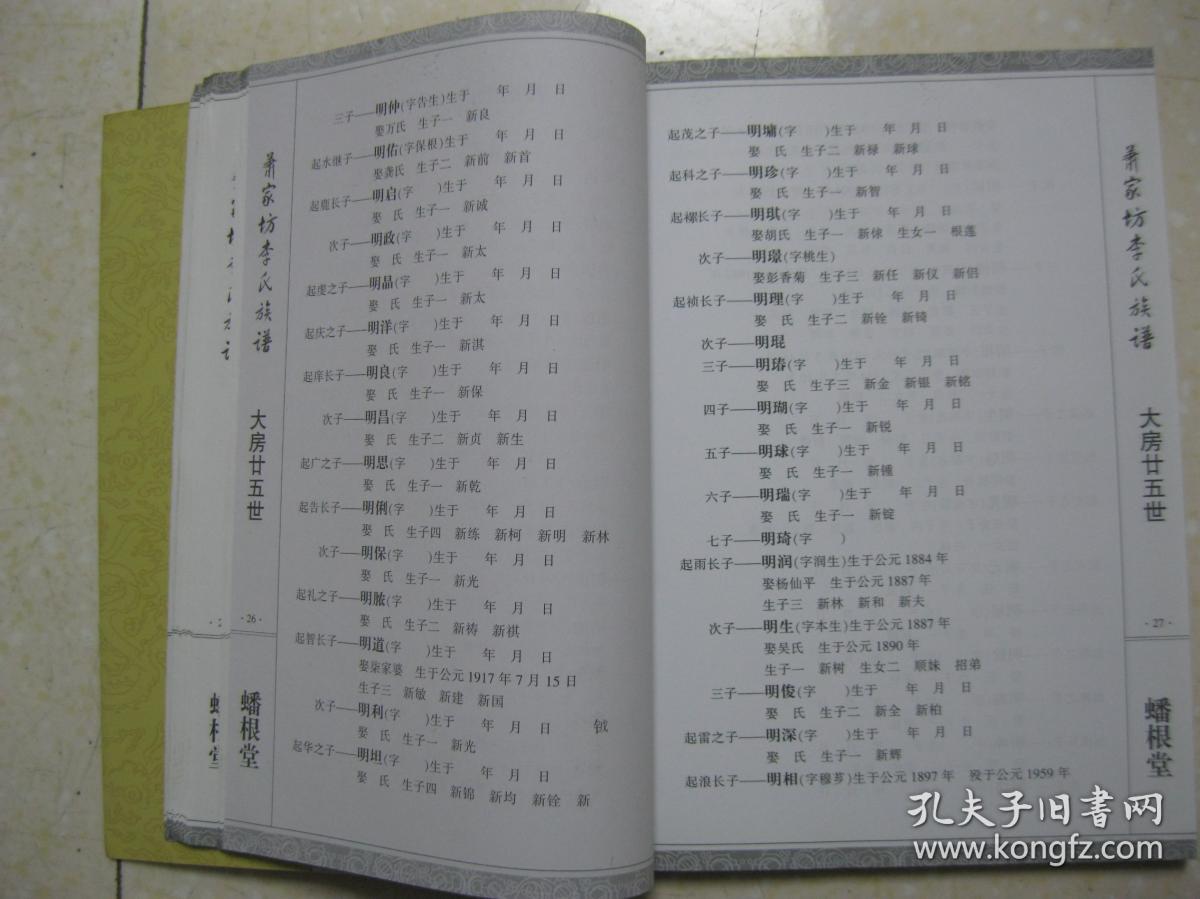 萧家坊李氏族谱
大房廿五世
·26·
蟠根堂
三子——明仲(字告生)生于 年 月 日
娶万氏 生子一 新良
起水继子——明佑(字保根)生于 年 月 日
娶龚氏 生子二 新前 新首
起鹿长子——明启(字 )生于 年 月 日
娶 氏 生子一 新诚
次子——明政(字 )生于 年 月 日
娶 氏 生子一 新太
起虔之子——明晶(字 )生于 年 月 日
娶 氏 生子一 新太
起庆之子——明洋(字 )生于 年 月 日
娶 氏 生子一 新淇
起庠长子——明良(字 )生于 年 月 日
娶 氏 生子一 新保
次子——明昌(字 )生于 年 月 日
娶 氏 生子二 新贞 新生
起广之子——明思(字 )生于 年 月 日
娶 氏 生子一 新乾
起告长子——明俐(字 )生于 年 月 日
娶 氏 生子四 新练 新柯 新明 新林
次子——明保(字 )生于 年 月 日
娶 氏 生子一 新光
起礼之子——明脓(字 )生于 年 月 日
娶 氏 生子二 新祷 新祺
起智长子——明道(字 )生于 年 月 日
娶柒家婆 生于公元1917年7月15日
生子三 新敏 新建 新国
次子——明利(字 )生于 年 月 日 钺
娶 氏 生子一 新光
起华之子——明坦(字 )生于 年 月 日
娶 氏 生子四 新锦 新均 新铨 新
起茂之子——明墉(字 )生于 年 月 日
娶 氏 生子二 新禄 新球
起科之子——明珍(字 )生于 年 月 日
娶 氏 生子一 新智
起襗长子——明琪(字 )生于 年 月 日
娶胡氏 生子一 新俅 生女一 根莲
次子——明璟(字桃生)
娶彭香菊 生子三 新任 新仪 新侣
起祯长子——明理(字 )生于 年 月 日
娶 氏 生子二 新铨 新锜
次子——明琨
三子——明瑃(字 )生于 年 月 日
娶 氏 生子三 新金 新银 新铭
四子——明瑚(字 )生于 年 月 日
娶 氏 生子一 新锐
五子——明球(字 )生于 年 月 日
娶 氏 生子一 新锺
六子——明瑞(字 )生于 年 月 日
娶 氏 生子一 新锭
七子——明琦(字 )
起雨长子——明润(字润生)生于公元1884年
娶杨仙平 生于公元1887年
生子三 新林 新和 新夫
次子——明生(字本生)生于公元1887年
娶吴氏 生于公元1890年
生子一 新树 生女二 顺妹 招弟
三子——明俊(字 )生于 年 月 日
娶 氏 生子二 新全 新柏
起雷之子——明深(字 )生于 年 月 日
娶 氏 生子一 新辉
起浪长子——明相(字穆芗)生于公元1897年 殁于公元1959年
萧家坊李氏族谱
大房廿五世
·27·
蟠根堂
孔夫子旧书网
www.kongfz.com